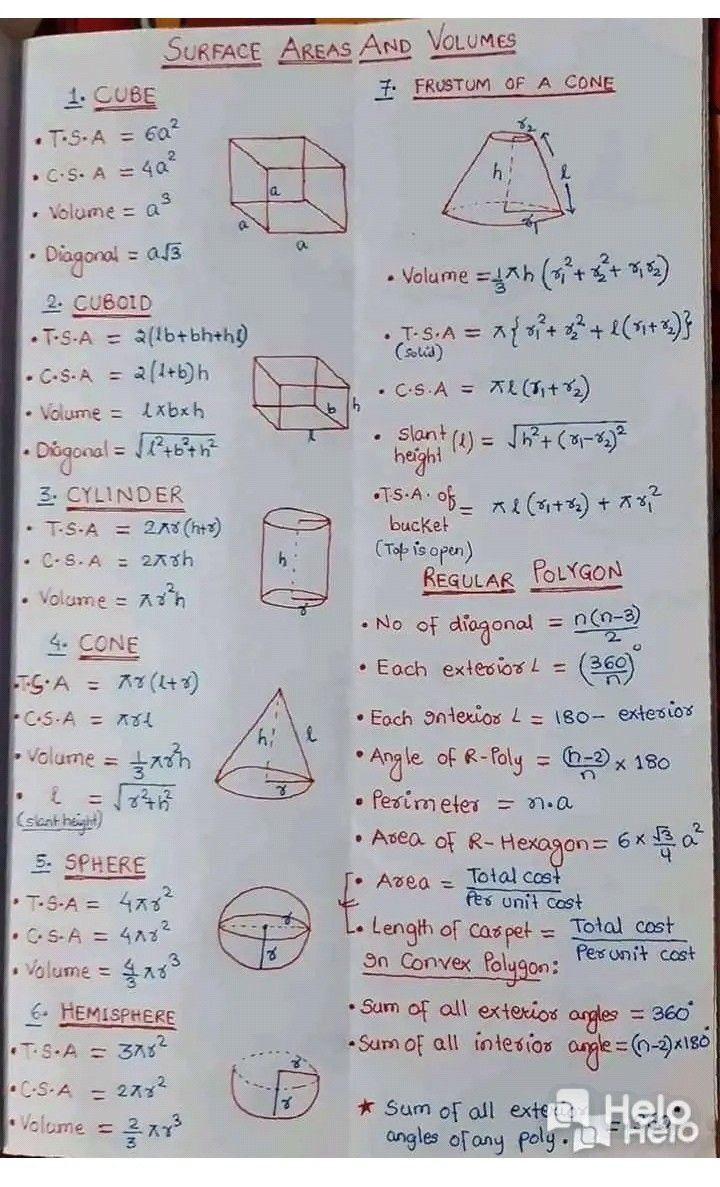 SURFACE AREAS AND VOLUMES
1. CUBE
• T.S.A = 6a²
• C.S.A = 4a²
• Volume = a³
• Diagonal = a√3
a
a
a
2. CUBOID
• T.S.A = 2(lb+bh+hl)
• C.S.A = 2(l+b)h
• Volume = l×b×h
• Diagonal = √(l²+b²+h²)
b
h
l
3. CYLINDER
• T.S.A = 2πr(h+r)
• C.S.A = 2πrh
• Volume = πr²h
h
r
4. CONE
• T.S.A = πr(l+r)
• C.S.A = πrl
• Volume = 1/3 πr²h
• l = √(r²+h²)
(slant height)
h
l
r
5. SPHERE
• T.S.A = 4πr²
• C.S.A = 4πr²
• Volume = 4/3 πr³
r
r
6. HEMISPHERE
• T.S.A = 3πr²
• C.S.A = 2πr²
• Volume = 2/3 πr³
r
r
7. FRUSTUM OF A CONE
r₂
h
l
r₁
• Volume = 1/3 πh (r₁² + r₂² + r₁r₂)
• T.S.A = π{r₁² + r₂² + l(r₁+r₂)}
(solid)
• C.S.A = πl(r₁+r₂)
• slant height (l) = √(h² + (r₁-r₂)²)
• T.S.A. of bucket = πl(r₁+r₂) + πr₁²
(Top is open)
REGULAR POLYGON
• No of diagonal = n(n-3)/2
• Each exterior L = (360/n)°
• Each Interior L = 180 - exterior
• Angle of R-Poly = (n-2)/n × 180
• Perimeter = n.a
• Area of R-Hexagon = 6 × √3/4 a²
• Area = Total cost/Per unit cost
• Length of carpet = Total cost/Per unit cost
In Convex Polygon:
• Sum of all exterior angles = 360°
• Sum of all interior angle = (n-2)×180°
★ Sum of all exterior
angles of any poly. =
Helo
Helo